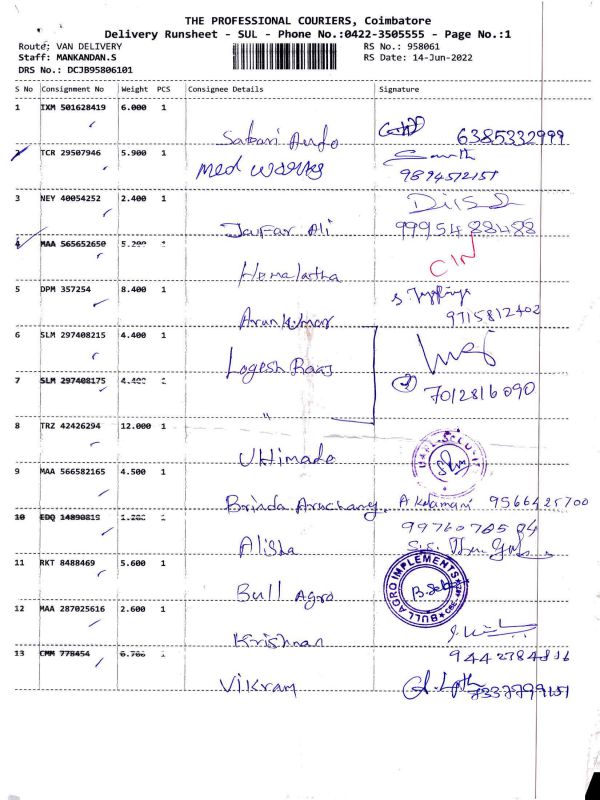 THE PROFESSIONAL COURIERS, Coimbatore
Delivery Runsheet - SUL - Phone No.:0422-3505555 - Page No.:1
Route: VAN DELIVERY RS No.: 958061
Staff: MANKANDAN.S RS Date: 14-Jun-2022
DRS No.: DCJB95806101
S No Consignment No Weight PCS Consignee Details Signature
1 IXM 501628419 6.000 1
Sabari Auto 6385332999
2 TCR 29507946 5.900 1
Med works 9894572157
3 NEY 40054252 2.400 1
Jaufar Ali 9995488488
4 MAA 565652650 5.200 1
Hemalatha CIN
5 DPM 357254 8.400 1
Arun Kumar 9715812402
6 SLM 297408215 4.400 1
Logesh Raaj
7 SLM 297408175 4.400 1
" 7012816090
8 TRZ 42426294 12.000 1
UHimada
9 MAA 566582165 4.500 1
Brinda 9566425700
10 EDQ 14890819 1.280 1
Alisha
11 RKT 8488469 5.600 1
Bull Agro BULL AGRO IMPLEMENTS
12 MAA 287025616 2.600 1
Krishnan
13 CMM 778454 6.786 1
Vikram